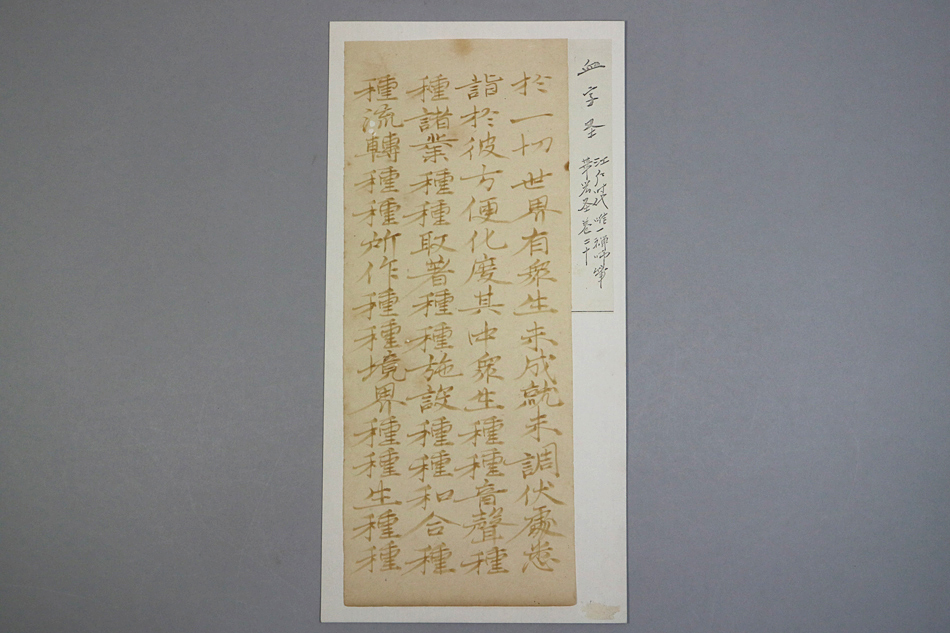 血字圣
江戸时代唯一禅师筆
華岩圣巻二十
於一切世界有衆生未成就未調伏處悉
詣於彼方便化度其中衆生種種音聲種
種諸業種種取著種種施設種種和合種
種流轉種種所作種種境界種種生種種